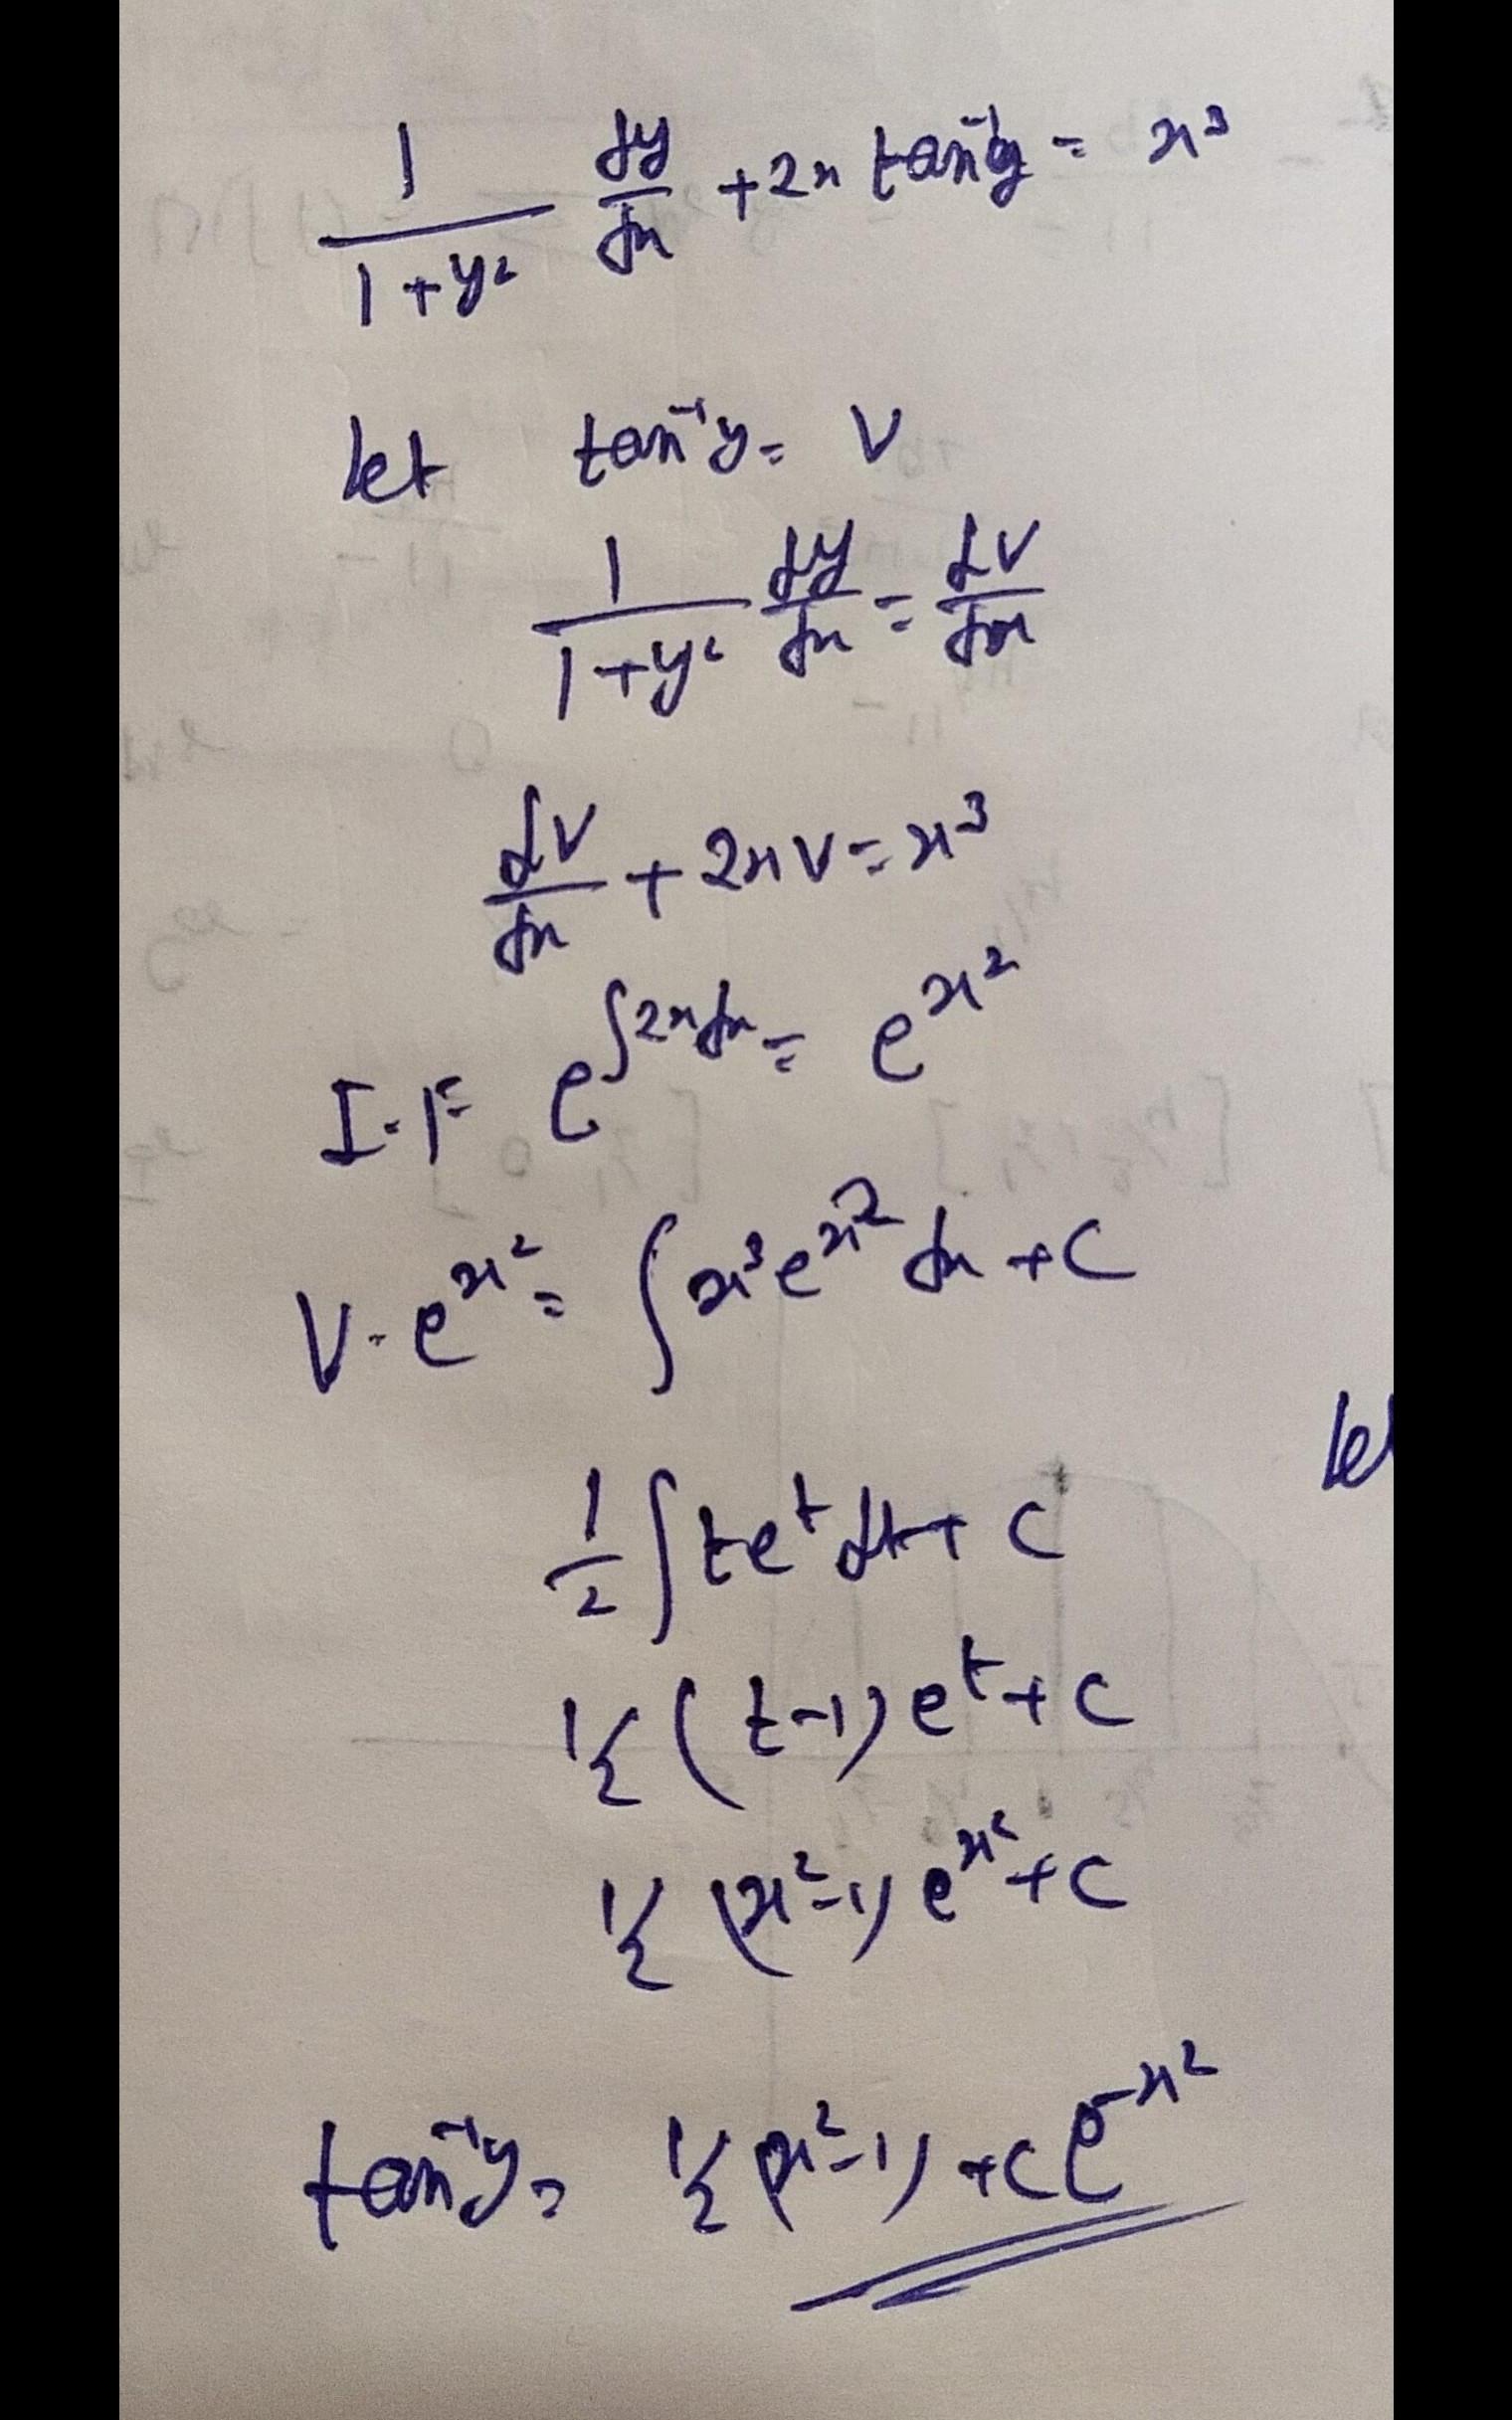 1/(1+y²) dy/dx + 2x tan⁻¹y = x³
let tan⁻¹y = V
1/(1+y²) dy/dx = dV/dx
dV/dx + 2xV = x³
I.F e^∫2xdx = e^x²
V.e^x² = ∫x³e^x² dx + C
le
1/2 ∫te^t dt + C
1/2 (t-1) e^t + C
1/2 (x²-1) e^x² + C
tan⁻¹y = 1/2 (x²-1) + Ce^-x²